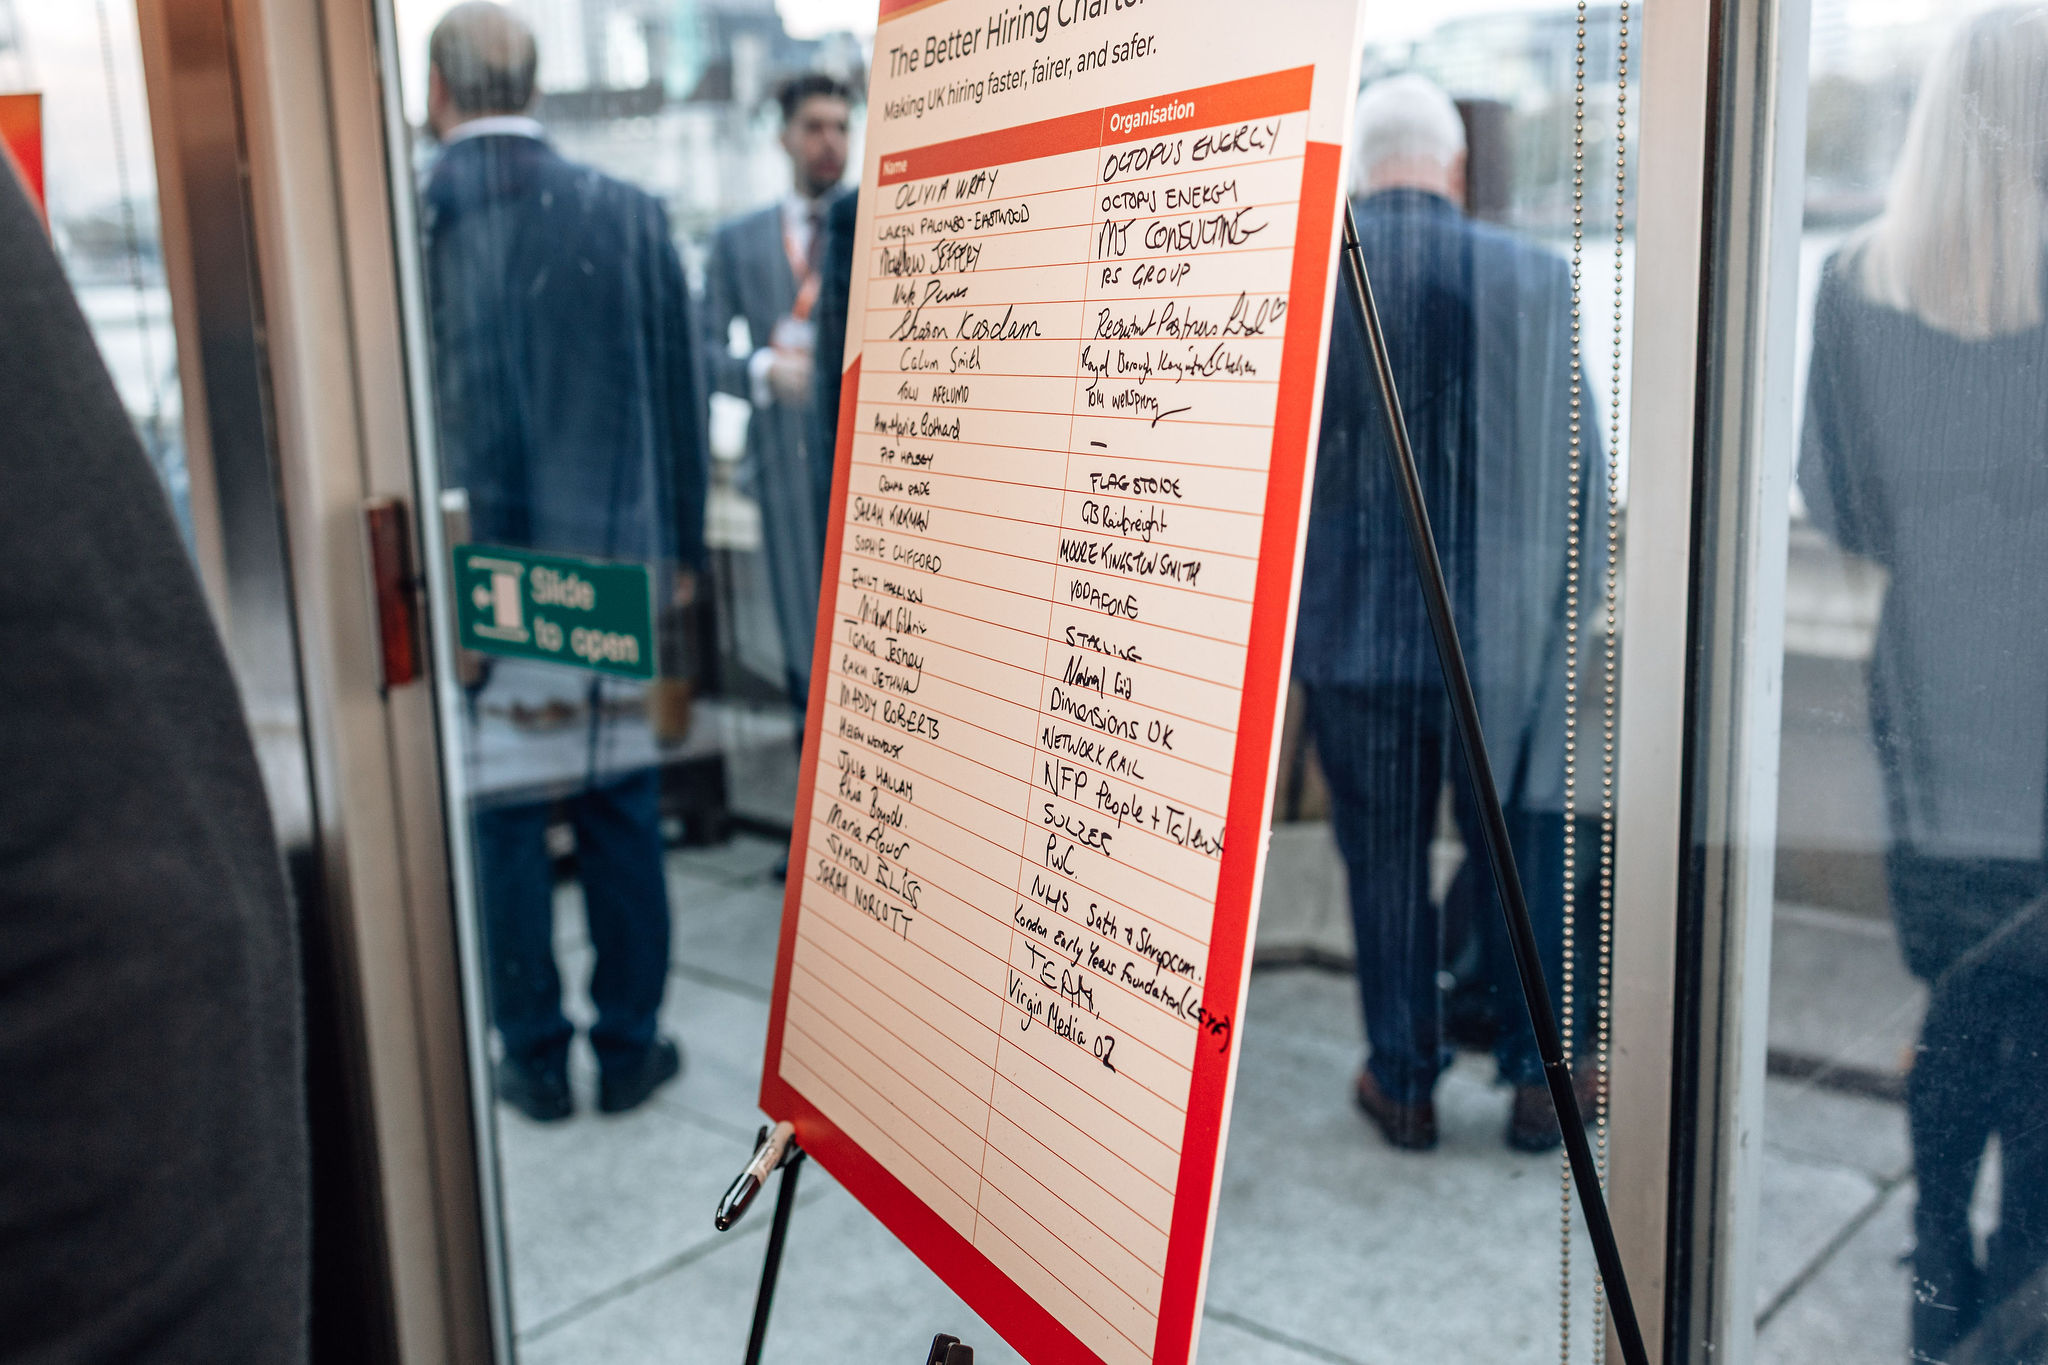 The Better Hiring Charter
Making UK hiring faster, fairer, and safer.
Name Organisation
OLIVIA WRAY OCTOPUS ENERGY
LAUREN PALOMBO-EASTWOOD OCTOPUS ENERGY
Matthew JEFFERY MJ CONSULTING
RS GROUP
Sharon Kasdam Recruitment Partners Ltd
Calum Smith Royal Borough Kensington & Chelsea
TOLU AFELUMO Tolu wellspring
Ann-Marie Gothard –
PIP HALSEY FLAGSTONE
GEMMA PADE GB Railfreight
SARAH KIRKMAN MOORE KINGSTON SMITH
SOPHIE CLIFFORD VODAFONE
EMILY HARRISON STARLING
National Grid
Tonia Jesney Dimensions UK
RAKHI JETHWA NETWORK RAIL
MADDY ROBERTS NFP People + Talent
HELEN SULZER
JULIE HALLAM PwC.
Rhia NHS Soth & Shropcom.
Maria Floud London Early Years Foundation (LEYF)
SIMON BLISS TEAM,
SARAH NORCOTT Virgin Media O2
Slide
to open